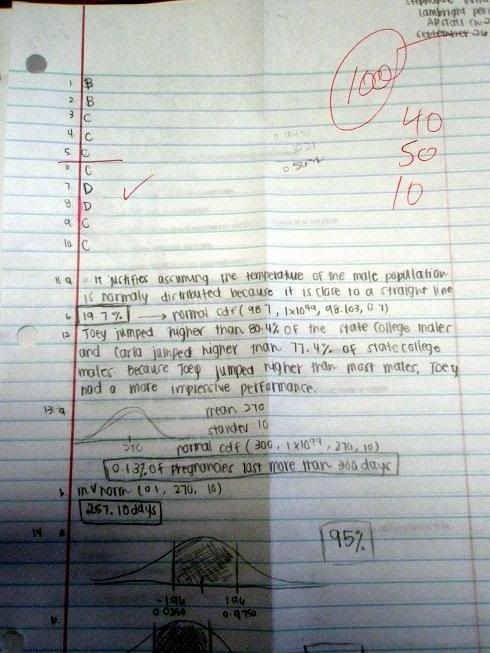 Lambright
AP Stats Ch 2
September 26
100
40
50
10
1 B
2 B
3 C
4 C
5 C
6 C
7 D
8 D
9 C
10 C
11 a. It justifies assuming the temperature of the male population
is normaly distributed because it is close to a straight line
b 19.7% → normal cdf (98.7, 1x10^99, 98.103, 0.7)
12 Joey jumped higher than 80.4% of the state college males
and Carla jumped higher than 77.4% of state college
males because Joey jumped higher than most males, Joey
had a more impressive performance.
13 a. mean 270
standev: 10
270
normal cdf (300, 1x10^99, 270, 10)
0.13% of pregnancies last more than 300 days
b. inv norm (0.1, 270, 10)
257.18 days
14 a
95%
-1.96 1.96
0.0250 0.9750
b.